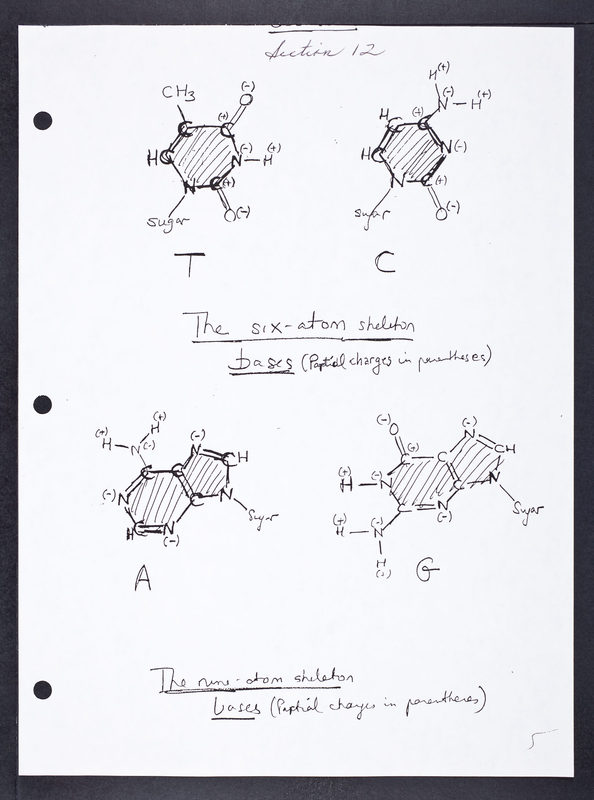 Section 12
CH3 (-) O (+) C C HC N (-) H (+) N C (+) O (-) sugar
H (+) N (-) H (+) H C C (+) HC N (-) N C (+) O (-) sugar
T C
The six-atom skeleton
bases (Partial charges in parentheses)
(+) H N (-) H (+) N (-) CH C C (-) N C N HC N (-) Sugar
O (-) C (+) C N (-) CH (+) H N (-) C N C N (-) (+) H N (-) H (+) Sugar
A G
The nine-atom skeleton
bases (Partial charges in parentheses)
5